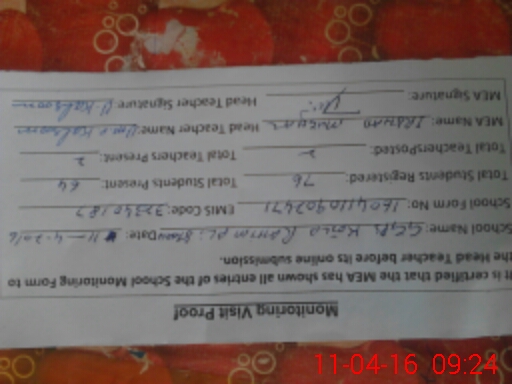 Monitoring Visit Proof
It is certified that the MEA has shown all entries of the School Monitoring Form to
the Head Teacher before its online submission.
School Name: Date: 11-4-2016
School Form No: 1604110902471 EMIS Code: 37340187
Total Students Registered: 76 Total Students Present: 64
Total TeachersPosted: 2 Total Teachers Present: 2
MEA Name: Head Teacher Name: Kalsoom
MEA Signature: Head Teacher Signature: Kalsoom
11-04-16 09:24